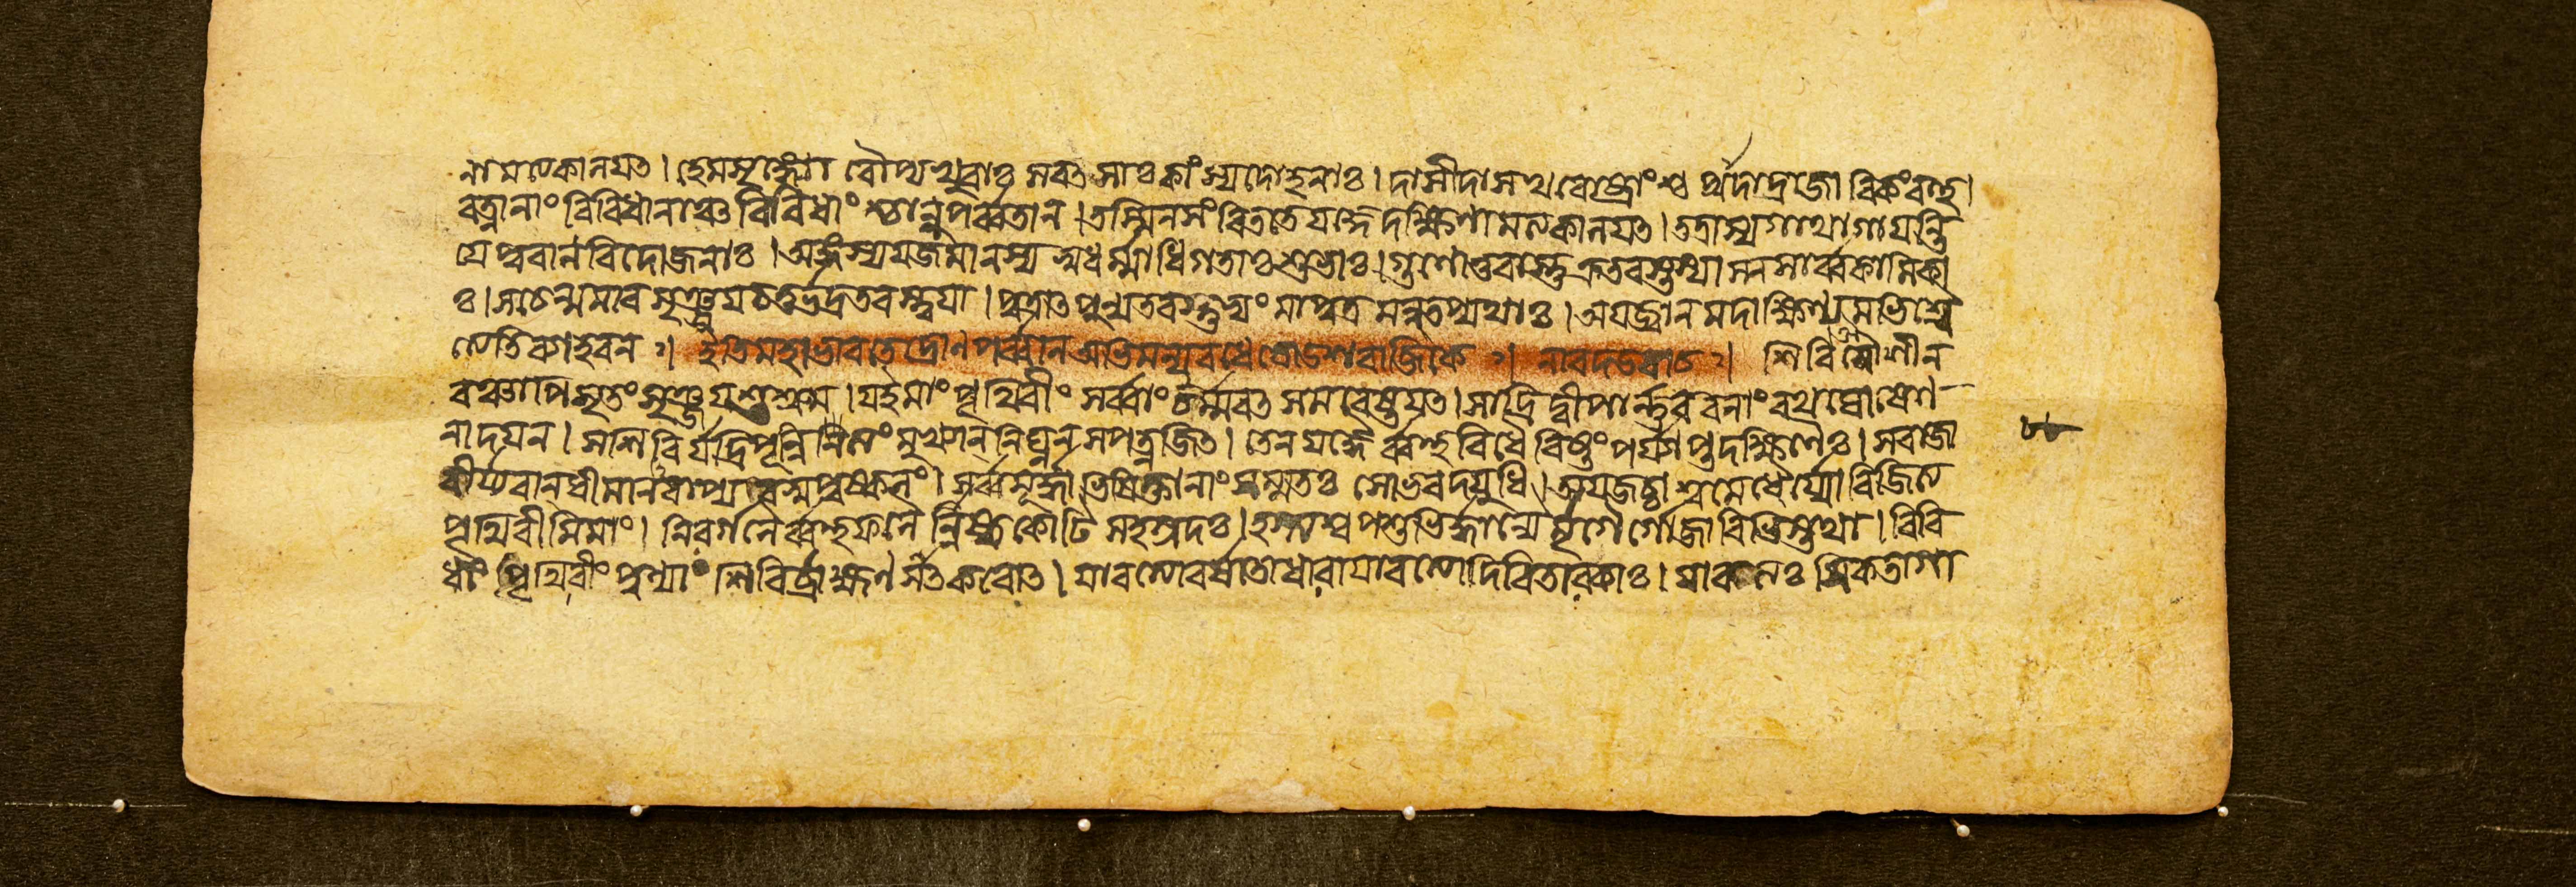 ণামত্যকালয়ৎ। হেমশৃঙ্গ্যো রৌপ্যখুরাঃ সবৎসাঃ কাংস্যদোহনাঃ। দাসীদাসখরোষ্ট্রাংশ্চ প্রাদাদ্রাজা বিকং বহু।
রত্নানাং বিবিধানাঞ্চ বিবিধাংশ্চান্নপর্ব্বতান। তস্মিনসংবিততে যজ্ঞে দক্ষিণামত্যকালয়ৎ। তত্রাস্য গাথা গায়ন্তি
যে পুরানবিদো জনাঃ। অঙ্গস্য যজমানস্য স্বধর্ম্মাধিগতাঃ শুভাঃ। গুণোত্তরাস্তু ক্রতবস্তস্যাসন সার্ব্বকামিকা
ঃ। স চেন্মমার সৃঞ্জয় চতুর্ভদ্রতরস্ত্বয়া। পুত্রাৎ পুন্যতরস্তুভ্যং মা পুত্রমনুতপ্যথাঃ। অযজ্বানমদাক্ষিণ্যমভিশ্বৈ
ত্যেতি ব্যাহরন॥ ইতি মহাভারতে দ্রোণপর্ব্বনি অভিমন্যুবধে ষোডশরাজিকে॥ নারদ উবাচ॥ শিবিমৌশীন
রঞ্চাপি মৃতং সৃঞ্জয় শুশ্রুম। য ইমাং পৃথিবীং সর্ব্বাং চর্ম্মবৎ সমবেষ্টয়ৎ। সাদ্রিদ্বীপার্ন্নববনাং রথঘোষেণ
নাদয়ন। স শিবির্যদ্রিপূন্নিত্যং মুখ্যান নিঘ্নন সপত্নজিৎ। তেন যজ্ঞৈর্ব্বহুবিধৈরিষ্টং পর্য্যাপ্তদক্ষিণৈঃ। স রাজা ৮৮
বীর্য্যবান ধীমানবাপ্য বসু পুষ্কলং। সর্ব্বমূর্দ্ধাভিষিক্তানাং সম্মতঃ সোভবদ্যুধি। অযজচ্চাশ্বমেধৈর্য্যো বিজিত্য
পৃথিবীমিমাং। নিরর্গলৈর্ব্বহুফলৈর্নিষ্ককোটিসহস্রদঃ। হস্ত্যশ্বপশুভির্দ্ধান্যৈর্মৃগৈর্গোজাবিভিস্তথা। বিবি
ধাং পৃথিবীং পুণ্যাং শিবির্ব্রাহ্মণসাৎকরোৎ। যাবত্যো বর্ষতো ধারা যাবত্যো দিবি তারকাঃ। যাবত্যঃ সিকতা গা